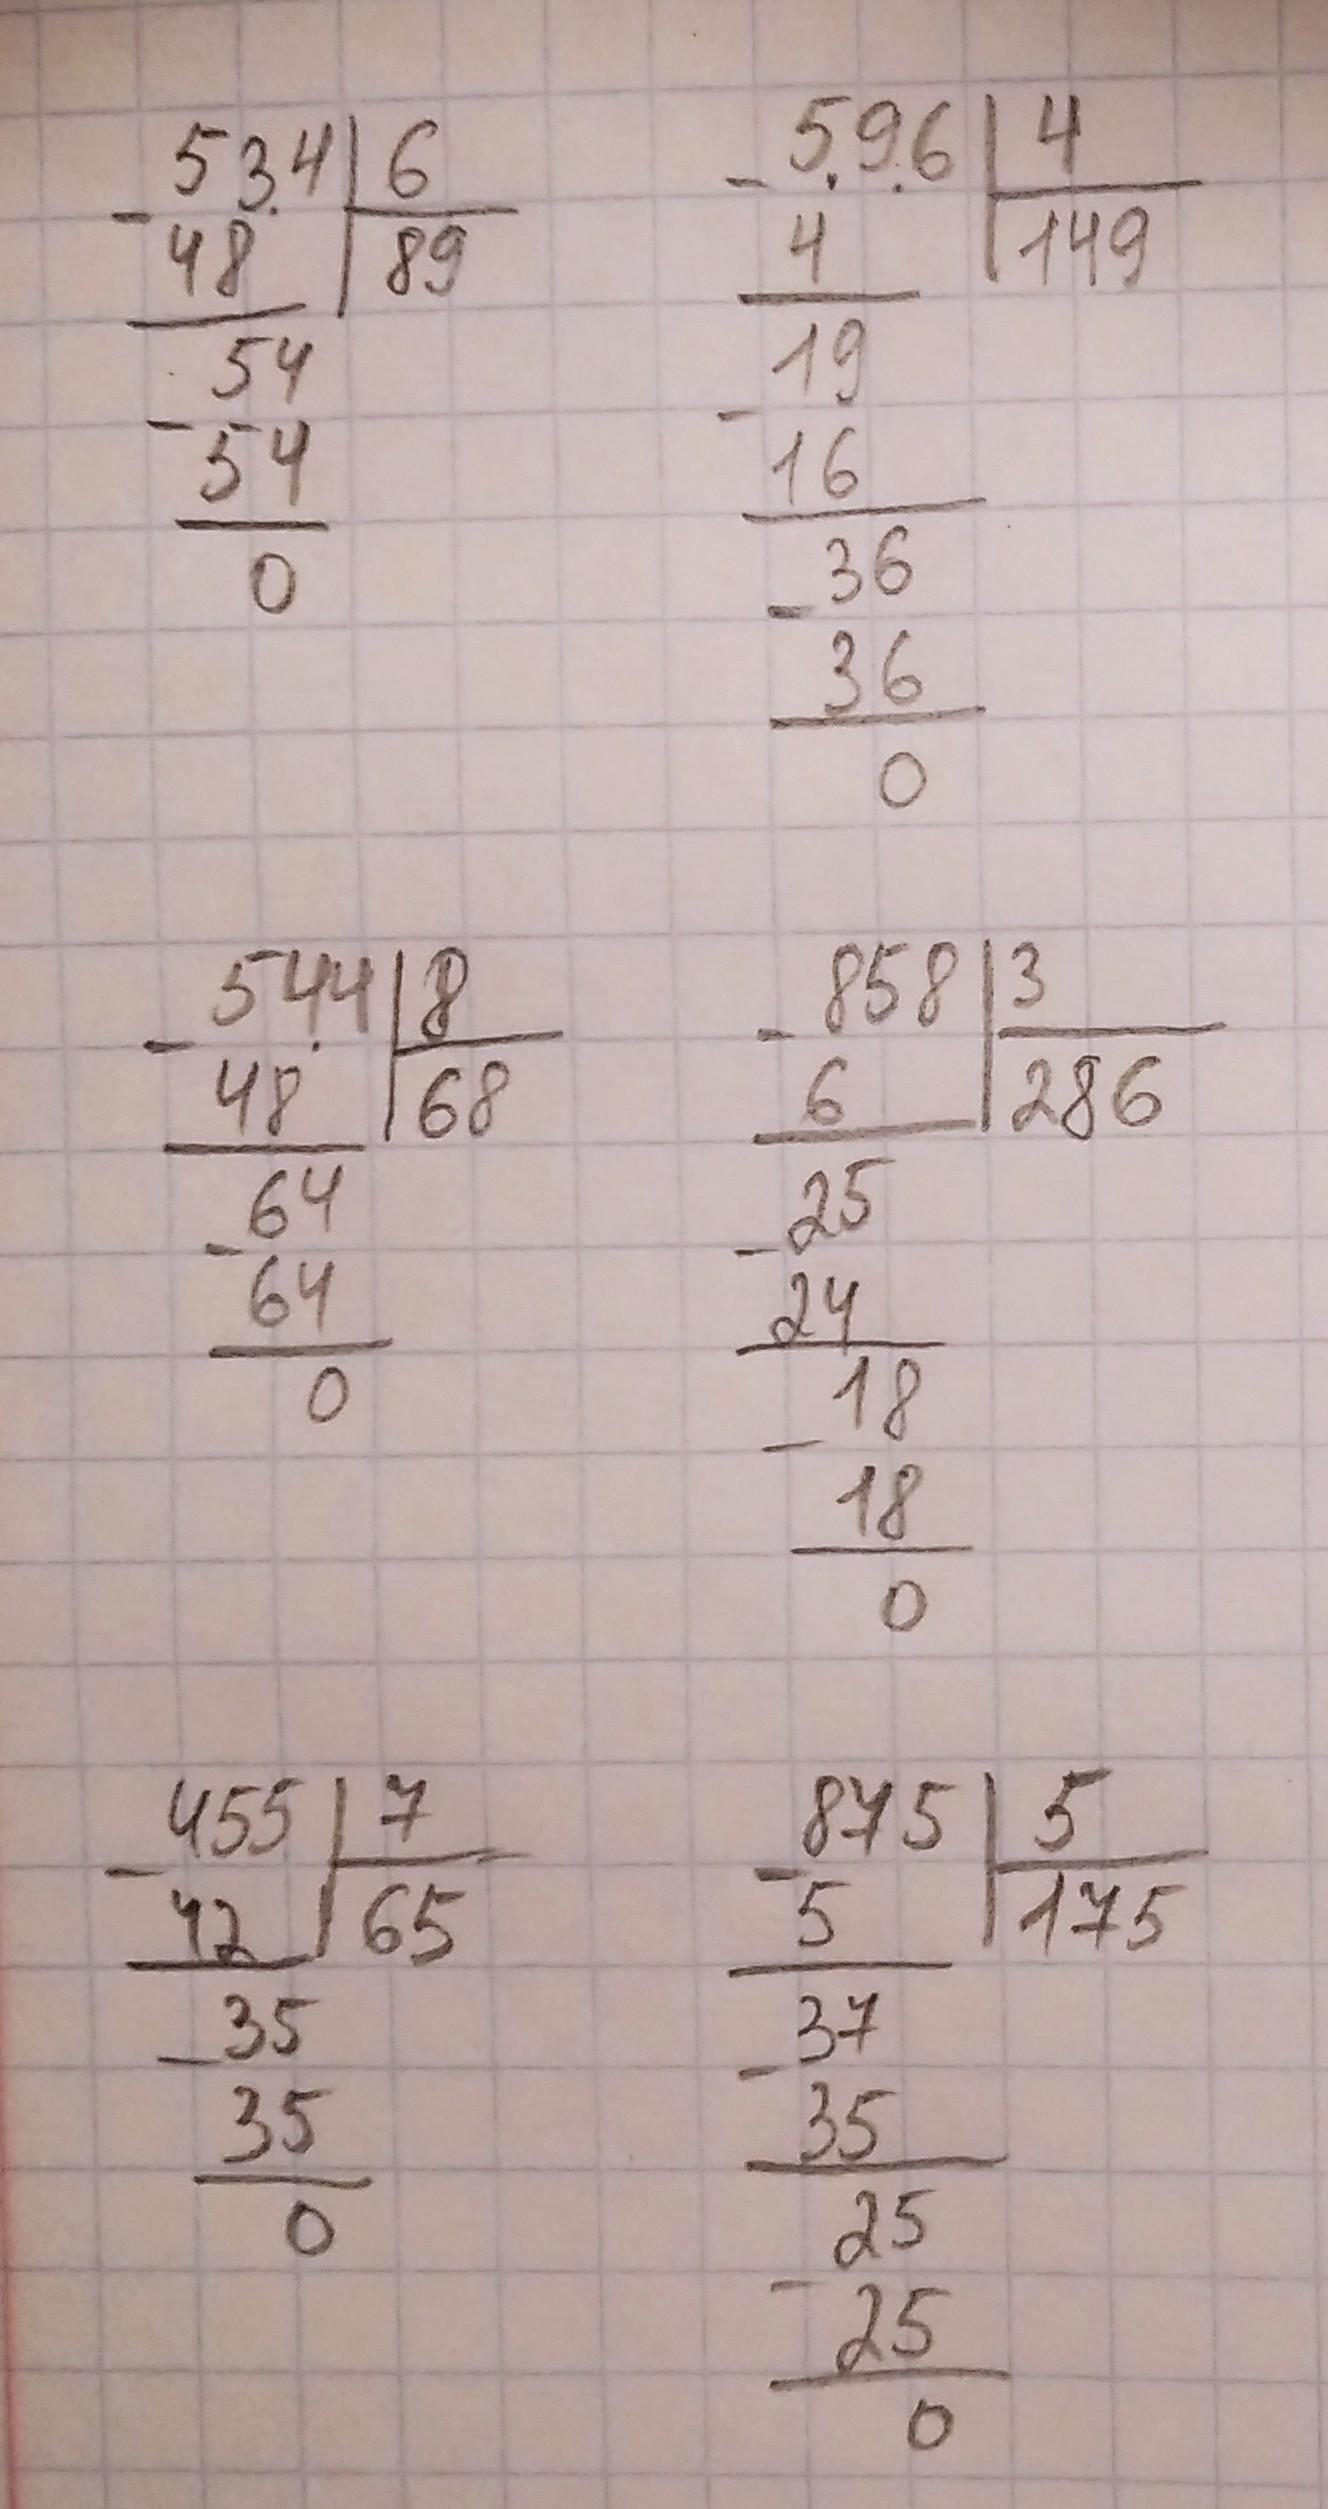 534 6
- 48 89
54
- 54
0
5.9.6 4
- 4 149
19
- 16
36
- 36
0
544 8
- 48 68
64
- 64
0
858 3
- 6 286
25
- 24
18
- 18
0
455 7
- 42 65
35
- 35
0
875 5
- 5 175
37
- 35
25
- 25
0